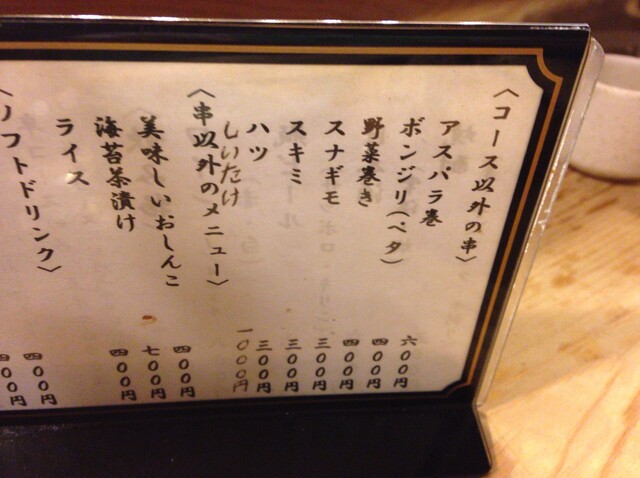 〈コース以外の串〉
アスパラ巻 六〇〇円
ボンジリ(ペタ) 四〇〇円
野菜巻き 四〇〇円
スナギモ 三〇〇円
スキミ 三〇〇円
ハツ 三〇〇円
しいたけ 一〇〇〇円
〈串以外のメニュー〉
美味しいおしんこ 四〇〇円
海苔茶漬け 七〇〇円
ライス 四〇〇円
〈ソフトドリンク〉
四〇〇円
四〇〇円